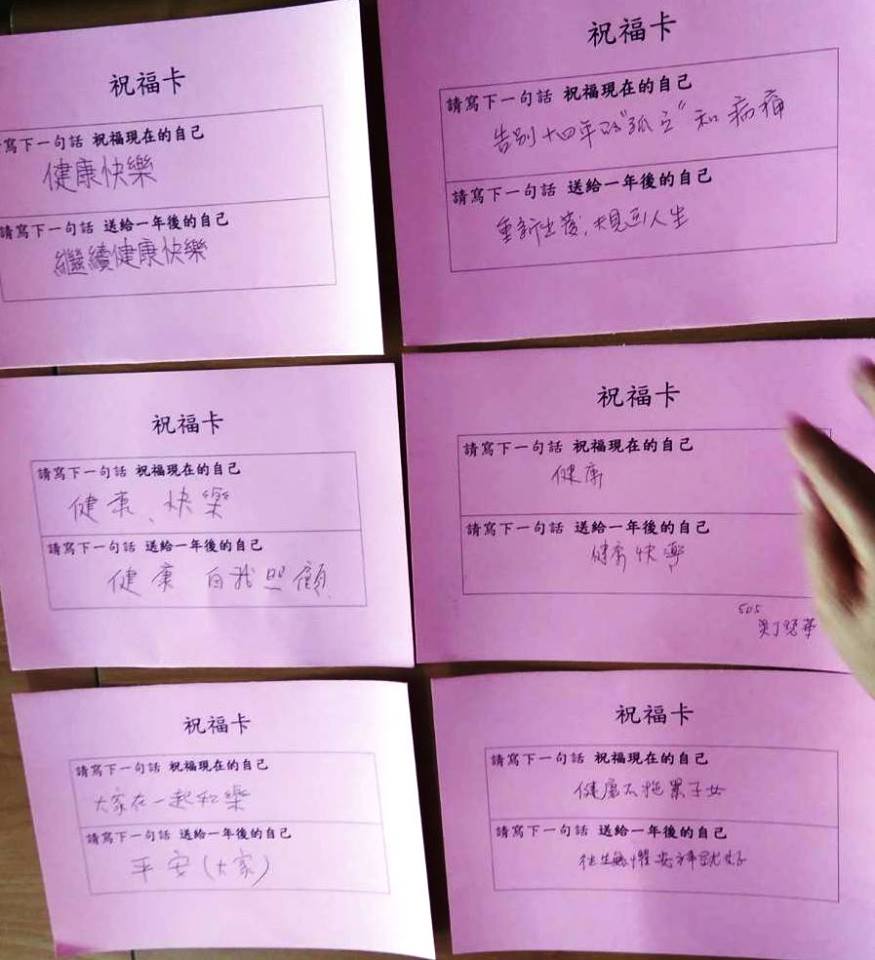 祝福卡
請寫下一句話 祝福現在的自己
健康快樂
請寫下一句話 送給一年後的自己
繼續健康快樂
祝福卡
請寫下一句話 祝福現在的自己
告別十四年的"孤立"和病痛
請寫下一句話 送給一年後的自己
重新出發,大見ㄉ人生
祝福卡
請寫下一句話 祝福現在的自己
健康、快樂
請寫下一句話 送給一年後的自己
健康 自我照顧
祝福卡
請寫下一句話 祝福現在的自己
健康
請寫下一句話 送給一年後的自己
健康快樂
505
祝福卡
請寫下一句話 祝福現在的自己
大家在一起和樂
請寫下一句話 送給一年後的自己
平安(大家)
祝福卡
請寫下一句話 祝福現在的自己
健康不拖累子女
請寫下一句話 送給一年後的自己
往生無懼安祥就好